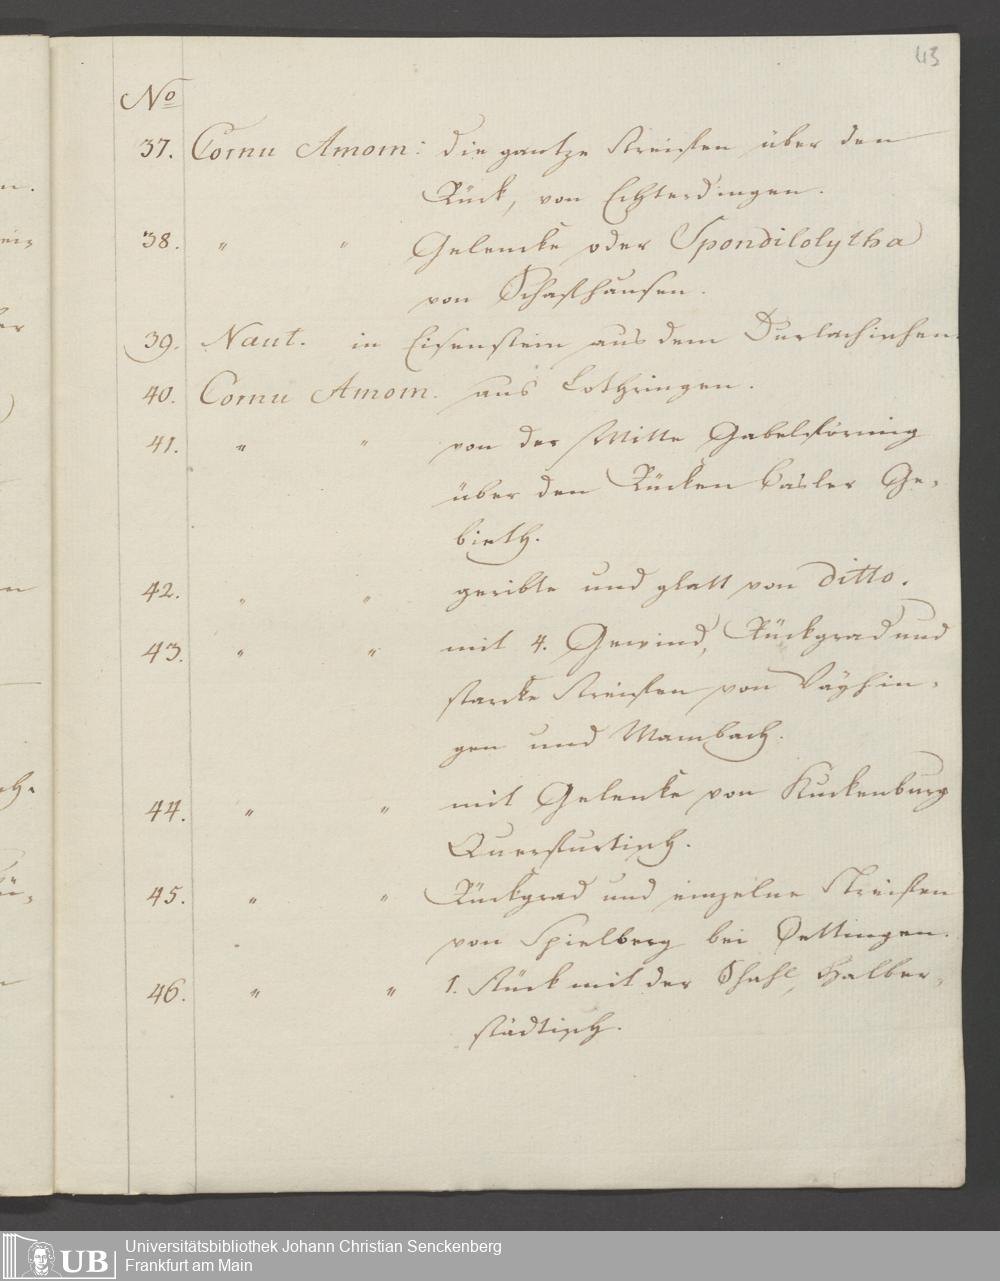 43
No
37. Cornu Amom: die gantze Streifen über den
Rück, von Echterdingen.
38. " " Gelencke oder Spondilolytha
von Schafhausen.
39. Naut. in Eisenstein aus dem Durlachischen.
40. Cornu Amom. aus Lothringen.
41. " " von der Mitte Gabelförmig
über den Rücken Basler Ge-
bieth.
42. " " geribte und glatt von ditto.
43. " " mit 4. Gewind, Rückgrad und
starcke Streifen von Vayhin-
gen und Wambach.
44. " " mit Gelenke von Kuckenburg
Querfurtisch.
45. " " Rückgrad und einzelne Streifen
von Spielberg bei Oettingen.
46. " " 1. Stück mit der Schahl, Halber-
städtisch.
UB
Universitätsbibliothek Johann Christian Senckenberg
Frankfurt am Main